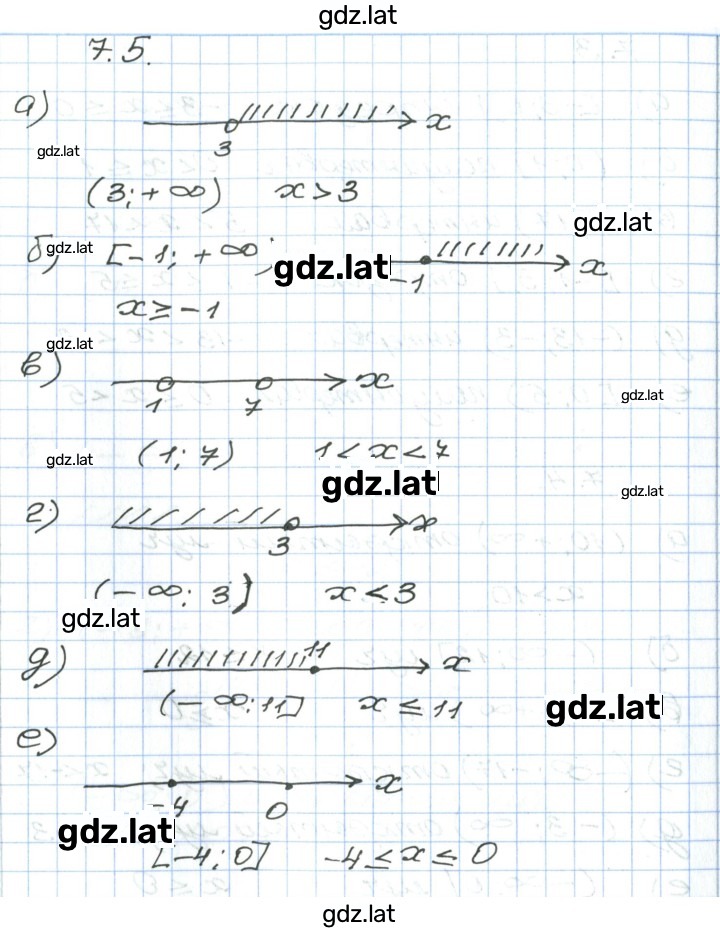 gdz.lat
7.5.
а)
x
gdz.lat
3
(3; +∞) x > 3
gdz.lat
б) gdz.lat [-1; +∞) gdz.lat
-1 x
x ≥ -1
gdz.lat
в)
x
1 7
gdz.lat
gdz.lat (1; 7) 1 < x < 7
gdz.lat gdz.lat
г)
x
3
(-∞; 3] x ≤ 3
gdz.lat
д) 11 x
(-∞; 11] x ≤ 11 gdz.lat
е)
x
-4 0
gdz.lat
[-4; 0] -4 ≤ x ≤ 0
gdz.lat